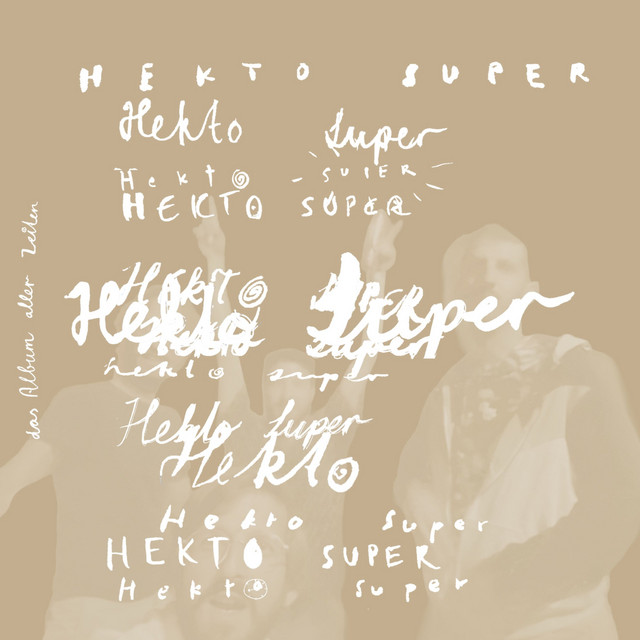 HEKTO SUPER
Hekto Super
Hekto SUPER
HEKTO SUPER
Hekto Super
hekto super
Hekto Super
Hekto
Hekto Super
HEKTO SUPER
Hekto super
das Album aller Zeiten